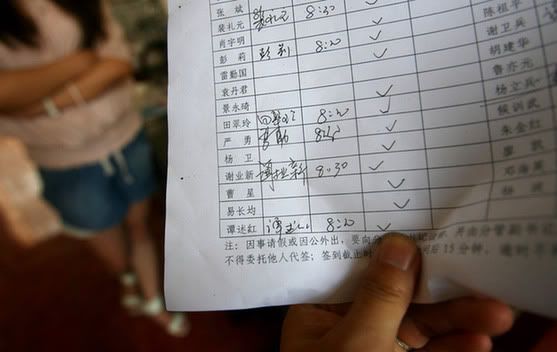 张 斌 8:30 ✓ 陈祖平
裴礼元 裴礼元 8:30 ✓ 谢卫兵
肖宇明 ✓ 胡建华
彭 莉 彭莉 8:20 ✓ 鲁亦元
雷勤国 杨立兵
袁丹君 ✓ 侯训武
景永琦 ✓ 朱金红
田翠玲 田翠玲 8:20 ✓ 廖 凯
严 勇 ✓ 邓海英
杨 卫 ✓ 杨
谢业新 谢业新 8:30 ✓
曹 星 ✓
易长均 ✓
谭述红 8:20 ✓
注:因事请假或因公外出,要向 并由分管副书记
不得委托他人代签;签到截止时 间后15分钟,逾时不